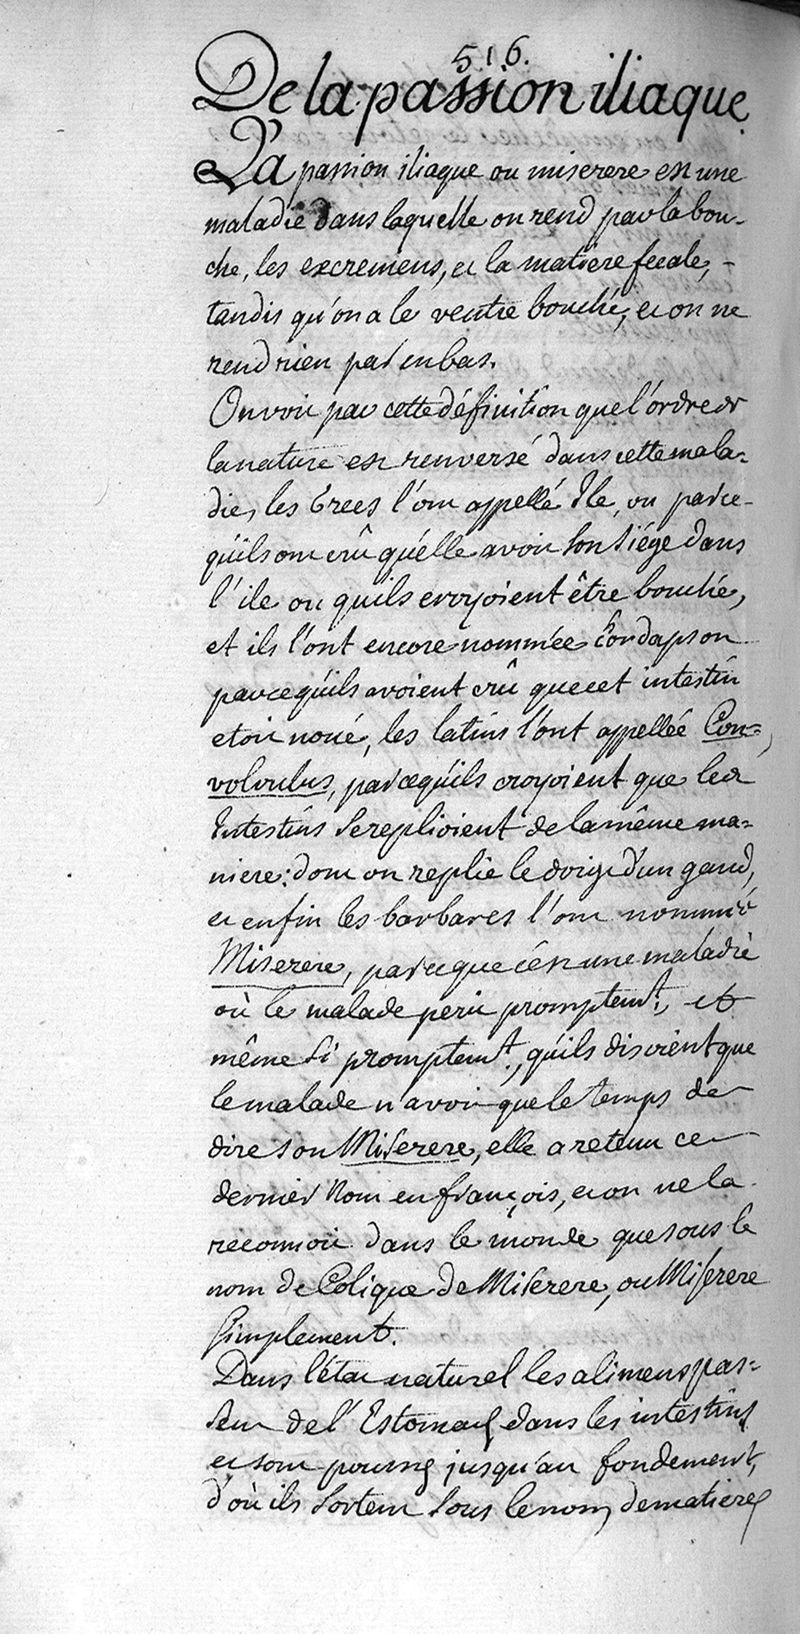 516.
De la passion iliaque
La passion iliaque ou miserere est une
maladie dans laquelle on rend par la bou-
che, les excremens, et la matiere fecale, -
tandis qu'on a le ventre bouché, et on ne
rend rien par en bas.
On voit par cette définition que l'ordre de
la nature est renversé dans cette mala-
die, les Grecs l'ont appellé Ile, ou parce-
qu'ils ont crû qu'elle avoit son siége dans
l'ile ou quils croyoient être bouché,
et ils l'ont encore nommée Cordapson
parcequ'ils avoient crû que cet intestin
etoit noué, les latins l'ont appellée Con-
volvulus, parcequ'ils croyoient que les
Intestins se replioient de la même ma-
niere: dont on replie le doigt d'un gand,
et enfin les barbares l'ont nommée
Miserere, parceque c'est une maladie
où le malade perit promptemt., et
même si promptemt., qu'ils disoient que
le malade n'avoit que le temps de
dire son Miserere, elle a retenu ce
dernier Nom en françois, et on ne la
reconnoit dans le monde que sous le
nom de Colique de Miserere, ou Miserere
simplement.
Dans l'état naturel les alimens pas-
sent de l'Estomac dans les intestins
et sont poussés jusqu'au fondement,
d'où ils sortent sous le nom de matieres